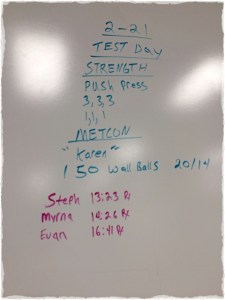 2-21
TEST Day
STRENGTH
Push Press
3, 3, 3
1, 1, 1
METCON
"Karen"
150 Wall Balls 20/14
Steph 13:23 Rx
Myrna 14:26 Rx
Evan 16:41 Rx